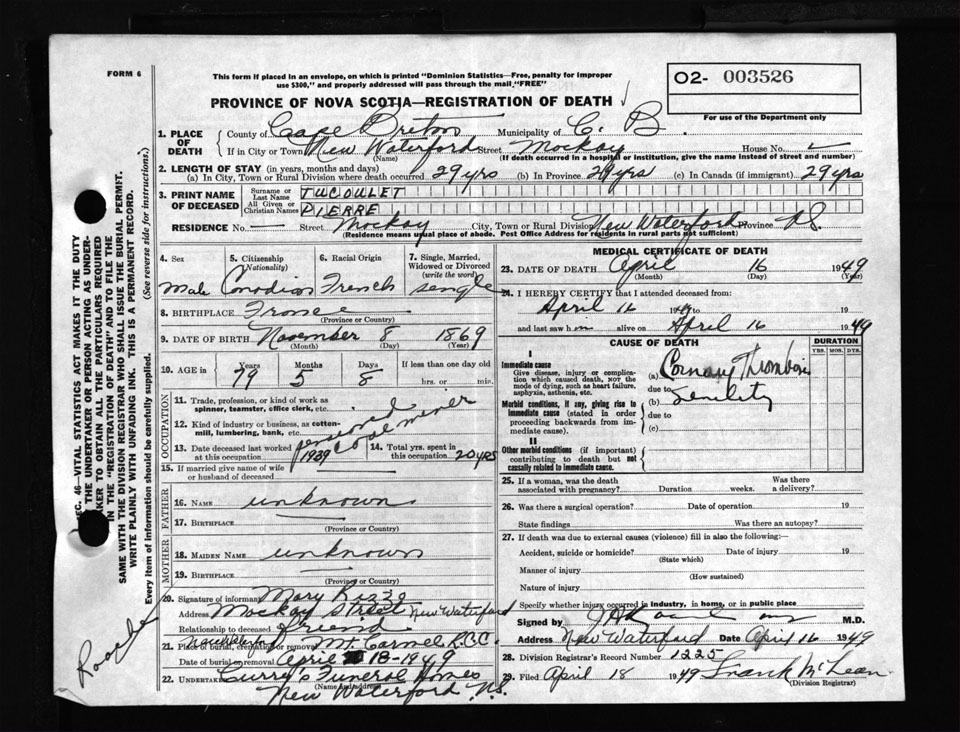 FORM 6
This form if placed in an envelope, on which is printed "Dominion Statistics—Free, penalty for improper
use $300," and properly addressed will pass through the mail, "FREE"
O2- 003526
For use of the Department only
PROVINCE OF NOVA SCOTIA—REGISTRATION OF DEATH
1. PLACE OF DEATH
County of Cape Breton Municipality of C. B.
If in City or Town New Waterford Street Mockay House No.
(Name) (If death occurred in a hospital or institution, give the name instead of street and number)
2. LENGTH OF STAY (in years, months and days)
(a) In City, Town or Rural Division where death occurred 29 yrs (b) In Province 29 yrs (c) In Canada (if immigrant) 29 yrs
3. PRINT NAME OF DECEASED
Surname or Last Name TUCOULET
All Given or Christian Names PIERRE
RESIDENCE No. — Street Mockay City, Town or Rural Division New Waterford Province N.S.
(Residence means usual place of abode. Post Office Address for residents in rural parts not sufficient)
4. Sex 5. Citizenship (Nationality) 6. Racial Origin 7. Single, Married, Widowed or Divorced (write the word)
Male Canadian French single
8. BIRTHPLACE France
(Province or Country)
9. DATE OF BIRTH November 8 1869
(Month) (Day) (Year)
10. AGE in Years Months Days If less than one day old
79 5 8 hrs. or min.
OCCUPATION
11. Trade, profession, or kind of work as
spinner, teamster, office clerk, etc.
pensioned
12. Kind of industry or business, as cotton-
mill, lumbering, bank, etc.
coal miner
13. Date deceased last worked at this occupation 1939 14. Total yrs. spent in this occupation 20 yrs
15. If married give name of wife
or husband of deceased —
FATHER
16. NAME unknown
17. BIRTHPLACE —
(Province or Country)
MOTHER
18. MAIDEN NAME unknown
19. BIRTHPLACE —
(Province or Country)
20. Signature of informant Mary Rizzo
Address Mockay Street New Waterford
Relationship to deceased friend
21. Place of burial, cremation or removal Mt. Carmel R.C.C.
Date of burial or removal April 18-1949
22. UNDERTAKER Curry's Funeral Homes
(Name and address)
New Waterford N.S.
MEDICAL CERTIFICATE OF DEATH
23. DATE OF DEATH April 16 1949
(Month) (Day) (Year)
24. I HEREBY CERTIFY that I attended deceased from:
April 16 19 to
and last saw him alive on April 16 1949
CAUSE OF DEATH DURATION
YRS. MOS. DYS.
I
Immediate cause
Give disease, injury or complica-
tion which caused death, NOT the
mode of dying, such as heart failure,
asphyxia, asthenia, etc.
(a) Coronary Thrombosis
due to
Morbid conditions, if any, giving rise to
immediate cause (stated in order
proceeding backwards from im-
mediate cause).
(b) Senility
due to
(c)
II
Other morbid conditions (if important)
contributing to death but not
causally related to immediate cause.
25. If a woman, was the death
associated with pregnancy? Duration weeks. Was there a delivery?
26. Was there a surgical operation? Date of operation 19
State findings Was there an autopsy?
27. If death was due to external causes (violence) fill in also the following:—
Accident, suicide or homicide? Date of injury 19
(State which)
Manner of injury
(How sustained)
Nature of injury
Specify whether injury occurred in industry, in home, or in public place
Signed by M.D.
Address New Waterford Date April 16 1949
28. Division Registrar's Record Number 1225
29. Filed April 18 1949 Frank McLean
(Division Registrar)
SEC. 46 VITAL STATISTICS ACT MAKES IT THE DUTY
OF THE UNDERTAKER OR PERSON ACTING AS UNDER-
TAKER TO OBTAIN ALL THE PARTICULARS REQUIRED
IN THE "REGISTRATION OF DEATH" AND TO FILE THE
SAME WITH THE DIVISION REGISTRAR WHO SHALL ISSUE THE BURIAL PERMIT.
WRITE PLAINLY WITH UNFADING INK. THIS IS A PERMANENT RECORD.
Every item of information should be carefully supplied. (See reverse side for instructions.)